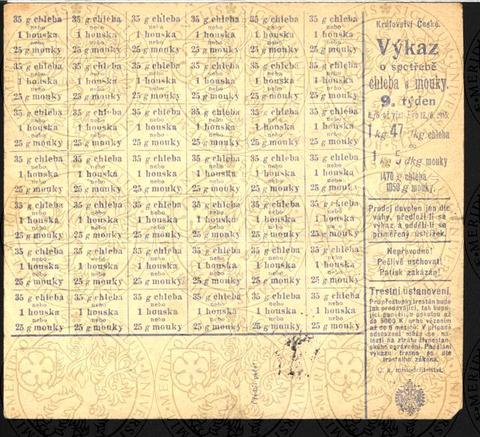 35 g chleba 35 g chleba 35 g chleba 35 g chleba 35 g chleba 35 g chleba
nebo nebo nebo nebo nebo nebo
1 houska 1 houska 1 houska 1 houska 1 houska 1 houska
nebo nebo nebo nebo nebo nebo
25 g mouky 25 g mouky 25 g mouky 25 g mouky 25 g mouky 25 g mouky
35 g chleba 35 g chleba 35 g chleba 35 g chleba 35 g chleba 35 g chleba
nebo nebo nebo nebo nebo nebo
1 houska 1 houska 1 houska 1 houska 1 houska 1 houska
nebo nebo nebo nebo nebo nebo
25 g mouky 25 g mouky 25 g mouky 25 g mouky 25 g mouky 25 g mouky
35 g chleba 35 g chleba 35 g chleba 35 g chleba 35 g chleba 35 g chleba
nebo nebo nebo nebo nebo nebo
1 houska 1 houska 1 houska 1 houska 1 houska 1 houska
nebo nebo nebo nebo nebo nebo
25 g mouky 25 g mouky 25 g mouky 25 g mouky 25 g mouky 25 g mouky
35 g chleba 35 g chleba 35 g chleba 35 g chleba 35 g chleba 35 g chleba
nebo nebo nebo nebo nebo nebo
1 houska 1 houska 1 houska 1 houska 1 houska 1 houska
nebo nebo nebo nebo nebo nebo
25 g mouky 25 g mouky 25 g mouky 25 g mouky 25 g mouky 25 g mouky
35 g chleba 35 g chleba 35 g chleba 35 g chleba 35 g chleba 35 g chleba
nebo nebo nebo nebo nebo nebo
1 houska 1 houska 1 houska 1 houska 1 houska 1 houska
nebo nebo nebo nebo nebo nebo
25 g mouky 25 g mouky 25 g mouky 25 g mouky 25 g mouky 25 g mouky
35 g chleba 35 g chleba 35 g chleba 35 g chleba 35 g chleba 35 g chleba
nebo nebo nebo nebo nebo nebo
1 houska 1 houska 1 houska 1 houska 1 houska 1 houska
nebo nebo nebo nebo nebo nebo
25 g mouky 25 g mouky 25 g mouky 25 g mouky 25 g mouky 25 g mouky
35 g chleba 35 g chleba 35 g chleba 35 g chleba 35 g chleba 35 g chleba
nebo nebo nebo nebo nebo nebo
1 houska 1 houska 1 houska 1 houska 1 houska 1 houska
nebo nebo nebo nebo nebo nebo
25 g mouky 25 g mouky 25 g mouky 25 g mouky 25 g mouky 25 g mouky
Království České.
Výkaz
o spotřebě
chleba a mouky.
9. týden
1 kg 47 chleba
1 kg 5 dkg mouky
1470 g chleba
1050 g mouky.
Prodej dovolen jen dle
váhy, předloží-li se
výkaz a oddělí-li se
přiměřený ústřižek.
Nepřevodno!
Pečlivě uschovat!
Patisk zakázán!
Trestní ustanovení.
Pro přestupky trestán bude
jak prodávající, tak kupu-
jící peněžitou pokutou až
do 5000 K nebo vězením
až do 6 měsíců. V případě
odsouzení může se ná-
lézti na ztrátu živnosten-
ského oprávnění. Padělání
výkazu trestno je dle
trestního zákona.
C. k. místodržitelství.